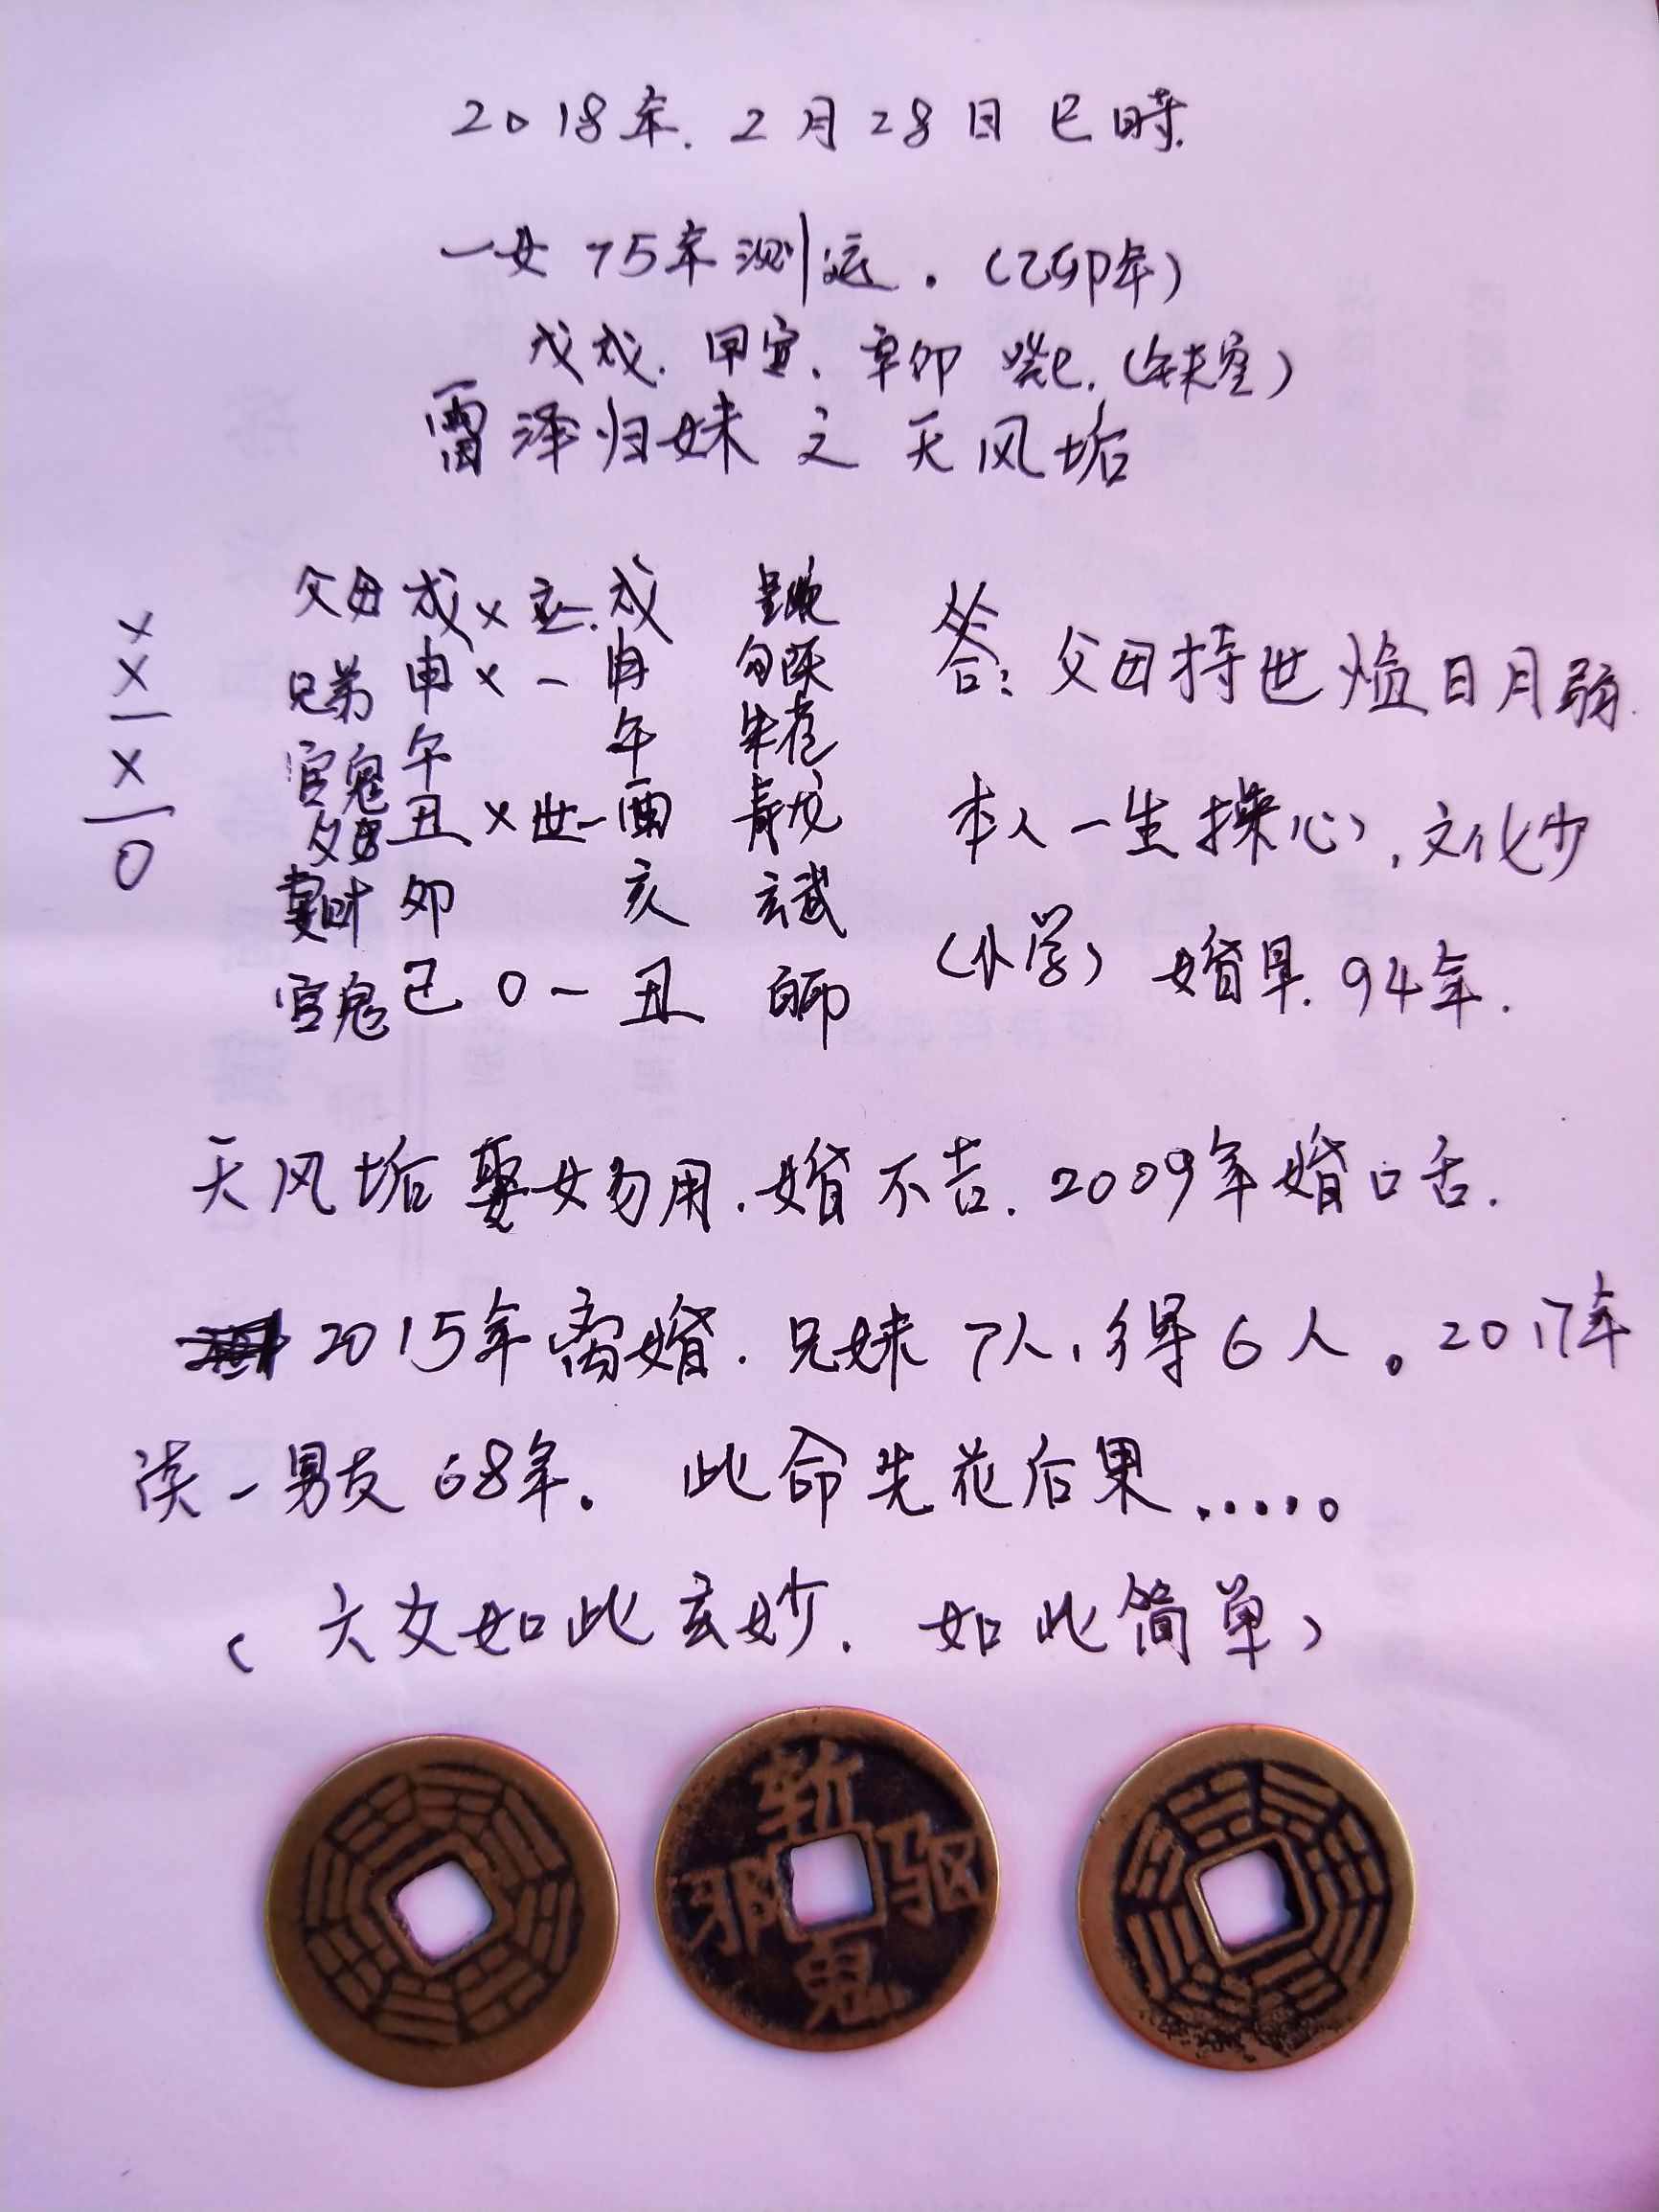 2018年.2月28日巳時.
一女75年测运.(乙卯年)
戊戌.甲寅.辛卯 癸巳.(午未空)
雷泽归妹之天风垢
父母 戌 × 应. 戌
兄弟 申 × - 申 勾陈
官鬼 午 午 朱雀
父母 丑 × 世- 酉 青龙
妻财 卯 亥 玄武
官鬼 巳 0 - 丑 白虎
×
×
—
×
—
0
答:父母持世 日月弱.
本人一生操心,文化少
(小学) 婚早.94年.
天风垢娶女勿用.婚不吉.2009年婚口舌.
2015年离婚.兄妹7人,得6人。2017年
谈一男友68年。此命先花后果.....。
(六爻如此玄妙.如此简单)
斩
邪 驱
鬼